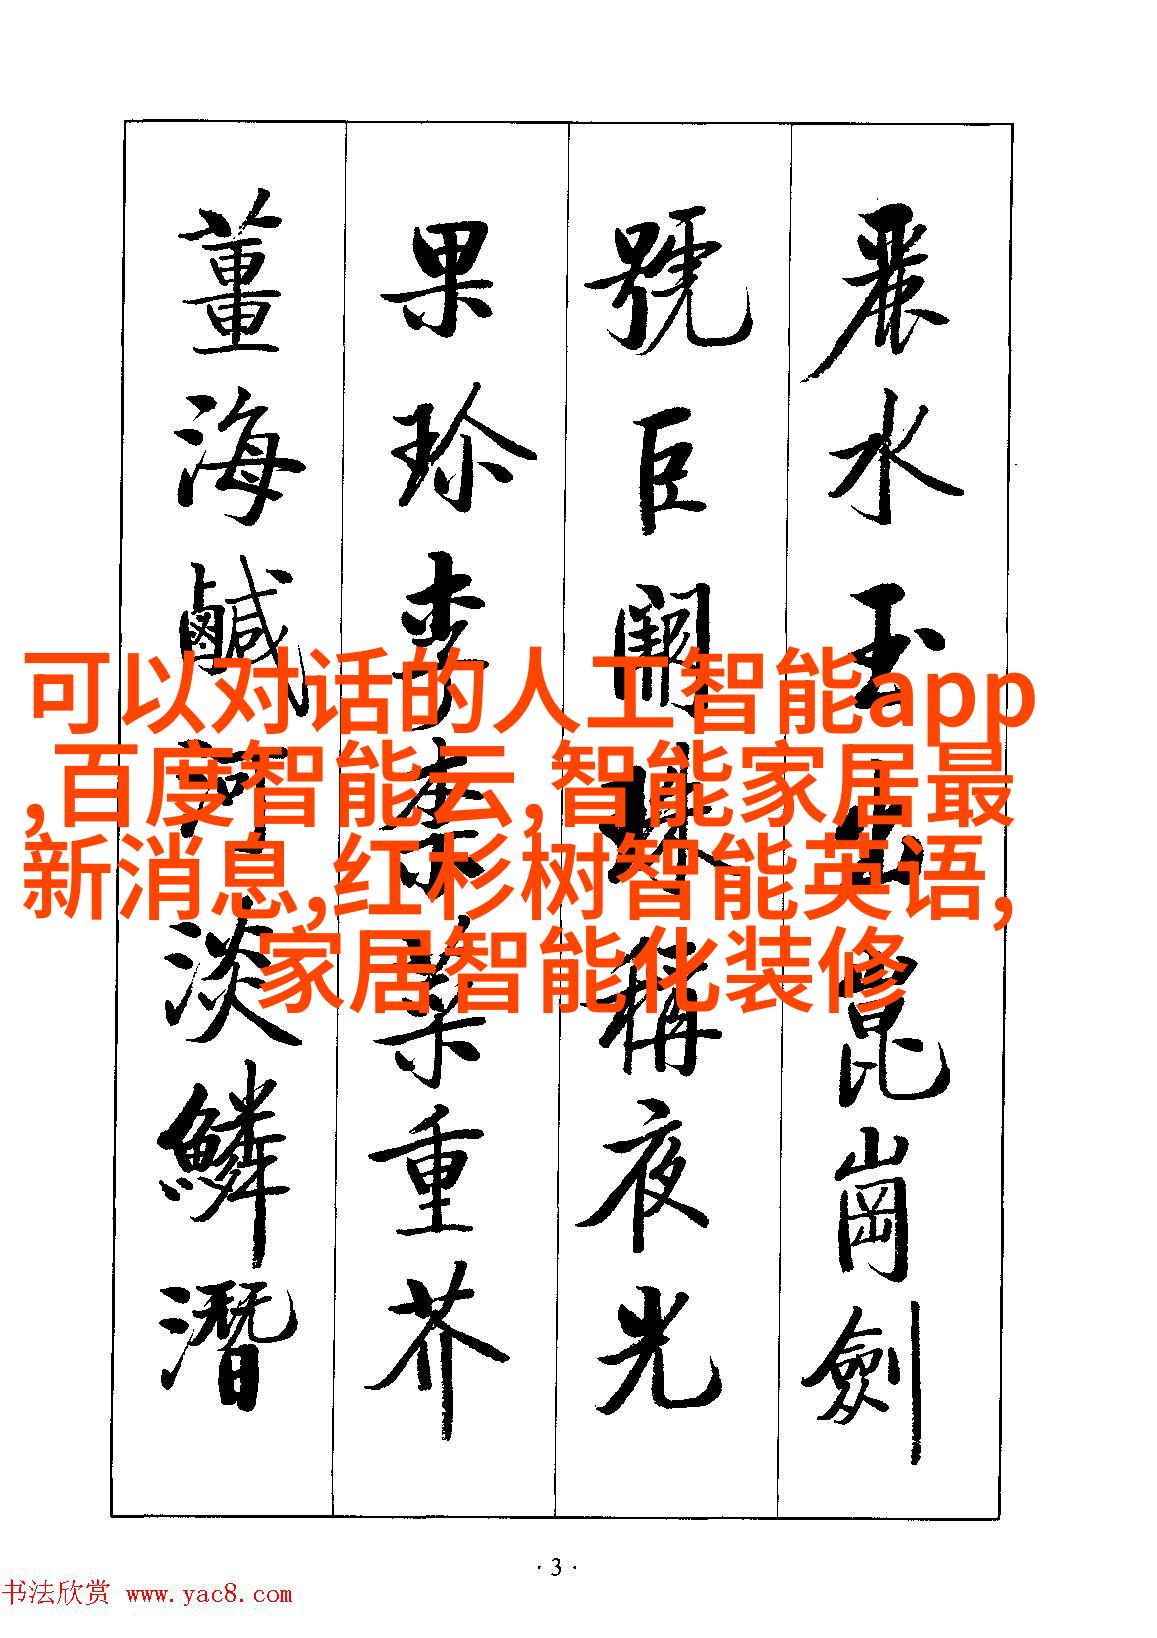 麗水玉出崑崗劍
號巨闕珠稱夜光
果珍李柰菜重芥
薑海鹹河淡鱗潛
可以对话的人工智能app
,百度智能云,智能家居最
新消息,红杉树智能英语,
家居智能化装修
· 3 ·
书法欣赏 www.yac8.com